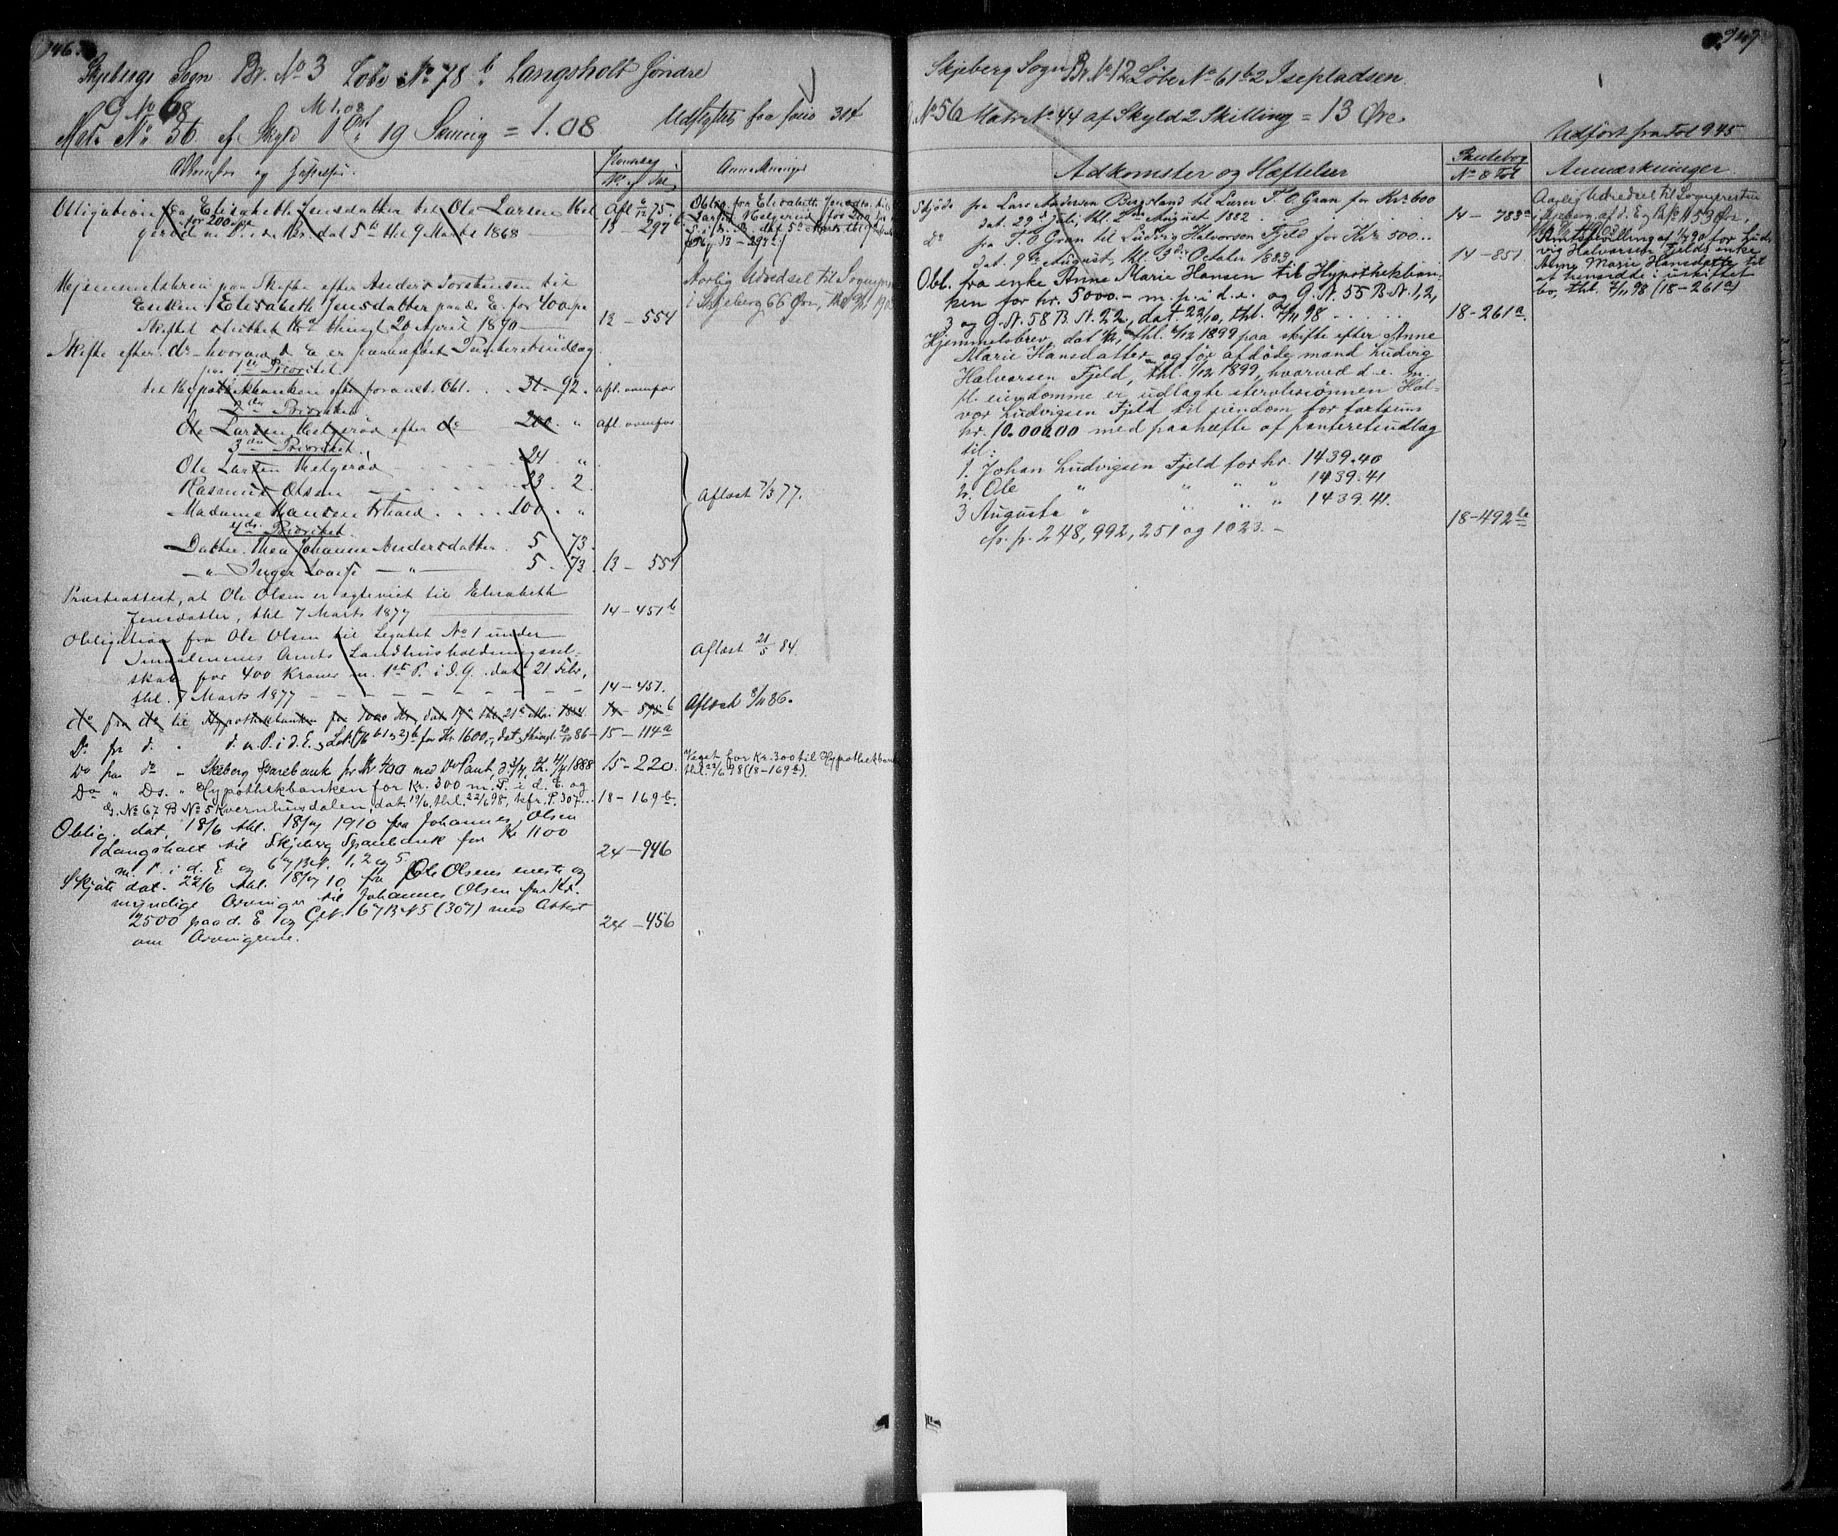 Skjeberg Sogn Br. No 3 Löbe No 78 b Langsholt Söndre
G No 68 M 1.08 Udflyttet fra folio 314
Matr No 56 af Skyld 1 Ort 19 Skilling = 1.08
Adkomster og Hæftelser
No & Fol
Anmærkninger
Obligation fra Elisabeth Jensdatter til Ole Larsen Hel-
for 200 spd
gerød m P. i d. Br. dat 5te thl 9 Marts 1868
Afl 6/12 75.
13 - 297 b
Oblig. fra Elisabeth Jensdtr. til
Larsen Helgerød for 200
Hjemmelsbrev paa Skifte efter Anders Torstensen til
Enken Elisabeth Jensdatter paa d. E. for 400 spd
Skiftet sluttet thingl 20 April 1870
12 - 554
Aarlig Udredsel til Sognepræsten
i Skjeberg 66 Øre,
Skifte efter do hvorved d. E er paahæftet Panteretsudlæg
paa 1ste Prioritet.
til Hypothekbanken efter foranst. Obl. . . 31. 92.
afl. ovenfor
2den Prioritet
Ole Larsen Helgerød efter do 200. "
afl. ovenfor
3die Prioritet.
Ole Larsen Helgerød 24 "
Rasmus Olsen 23. 2.
Madame Hansen 100. "
4de Prioritet.
Datter Thea Johanne Andersdatter 5 73.
" Inger Lovise " 5. 73
12 - 554
Aflæst 7/3 77.
Præsteattest, at Ole Olsen er egteviet til Elisabeth
Jensdatter, thl 7 Marts 1877
14 - 451 b
Obligation fra Ole Olsen til Legatet No 1 under
Smaalenenes Amts Landhusholdningssel-
skab for 400 Kroner m. 1ste P. i d. G. dat 21 Febr,
thl. 7 Marts 1877
14 - 457.
Aflæst 21/5 84.
do fra do til Hypothekbanken for 1000 Kr, dat 19de thl 21de Mai 1884.
14 - 575 b
Aflæst 8/11 86.
Do fr do " d. m P. i d. E. for Kr. 1600,
15 - 114 a
Do fra do " Skeberg Sparebank for Kr 400 med Do Pant, 1888
15 - 220.
Veget for Kr. 300 til Hypothekbanken
thl. 22/6 98 (18 - 169 b.)
Do " Do. " Hypothekbanken for Kr. 300 m. P. i d. E. og
G. No 67 B No 5 Kvernhusdalen, dat. 19/6, thl. 22/6 98, kfr. P. 307
18 - 169 b.
Oblig. dat. 18/6 thl. 18/7 1910 fra Johannes Olsen
Langsholt til Skjeberg Sparebank for Kr 1100
m P. i d. E og 67 B.N. 1, 2 og 5.
24 - 946
Skjøte dat. 22/6 thl. 18/7 10 fra Ole Olsens eneste og
myndige Arvinger til Johannes Olsen for Kr.
2500 paa d. E og G.N. 67 B.N 5 (307) med Attest
om Arvingerne.
24 - 456
Skjeberg Sogn Br. No 12 Löbe No 61 b 2 Isepladsen.
G No 56 Matr No 44 af Skyld 2 Skilling = 13 Øre.
Udført fra Fol 945
Adkomster og Hæftelser
Pantebog
No & Fol
Anmærkninger.
Skjøde fra Lars Andersen Bergsland til Lærer T. O. Gran for Kr. 600
dat. 29de Juli, thl. 2den August 1882
14 - 783 a
do fra T. O. Gran til Ludvig Halvorsen Fjeld for Kr. 500
dat. 9de August, thl. 3die October 1883
14 - 851
Aarlig Udredsel til Sognepræsten
i Skjeberg af d. E
Amtsbevilling af for Lud-
vig Halvorsen Fjelds enke
Anne Marie Hansdatter til
at hensidde i uskiftet
bo, thl. 7/11 98 (18 - 261 a)
Obl. fra enke Anne Marie Hansen til Hypothekban-
ken for kr. 5000.- m. p. i d. e. og G. N. 55 B. N. 1, 2,
3 og G. N. 58 B. N. 22, dat 22/10, thl. 7/11 98
18 - 261 a.
Hjemmelsbrev, dat thl. 1/12 1899 paa skifte efter Anne
Marie Hansdatter og før afdøde mand Ludvig
Halvorsen Fjeld, thl. 1/12 1899, hvorved d. e. m.
fl. eiendomme er udlagte stervbosønnen Hal-
vor Ludvigsen Fjeld til eiendom for taxtsum
kr. 10.000.00 med paahæfte af panteretsudlæg
til:
1. Johan Ludvigsen Fjeld for kr. 1439.40
2. Ole " " " " 1439.41
3 Augusta " " " " 1439.41.
cfr. p. 248, 992, 251 og 1023.-
18 - 492 b